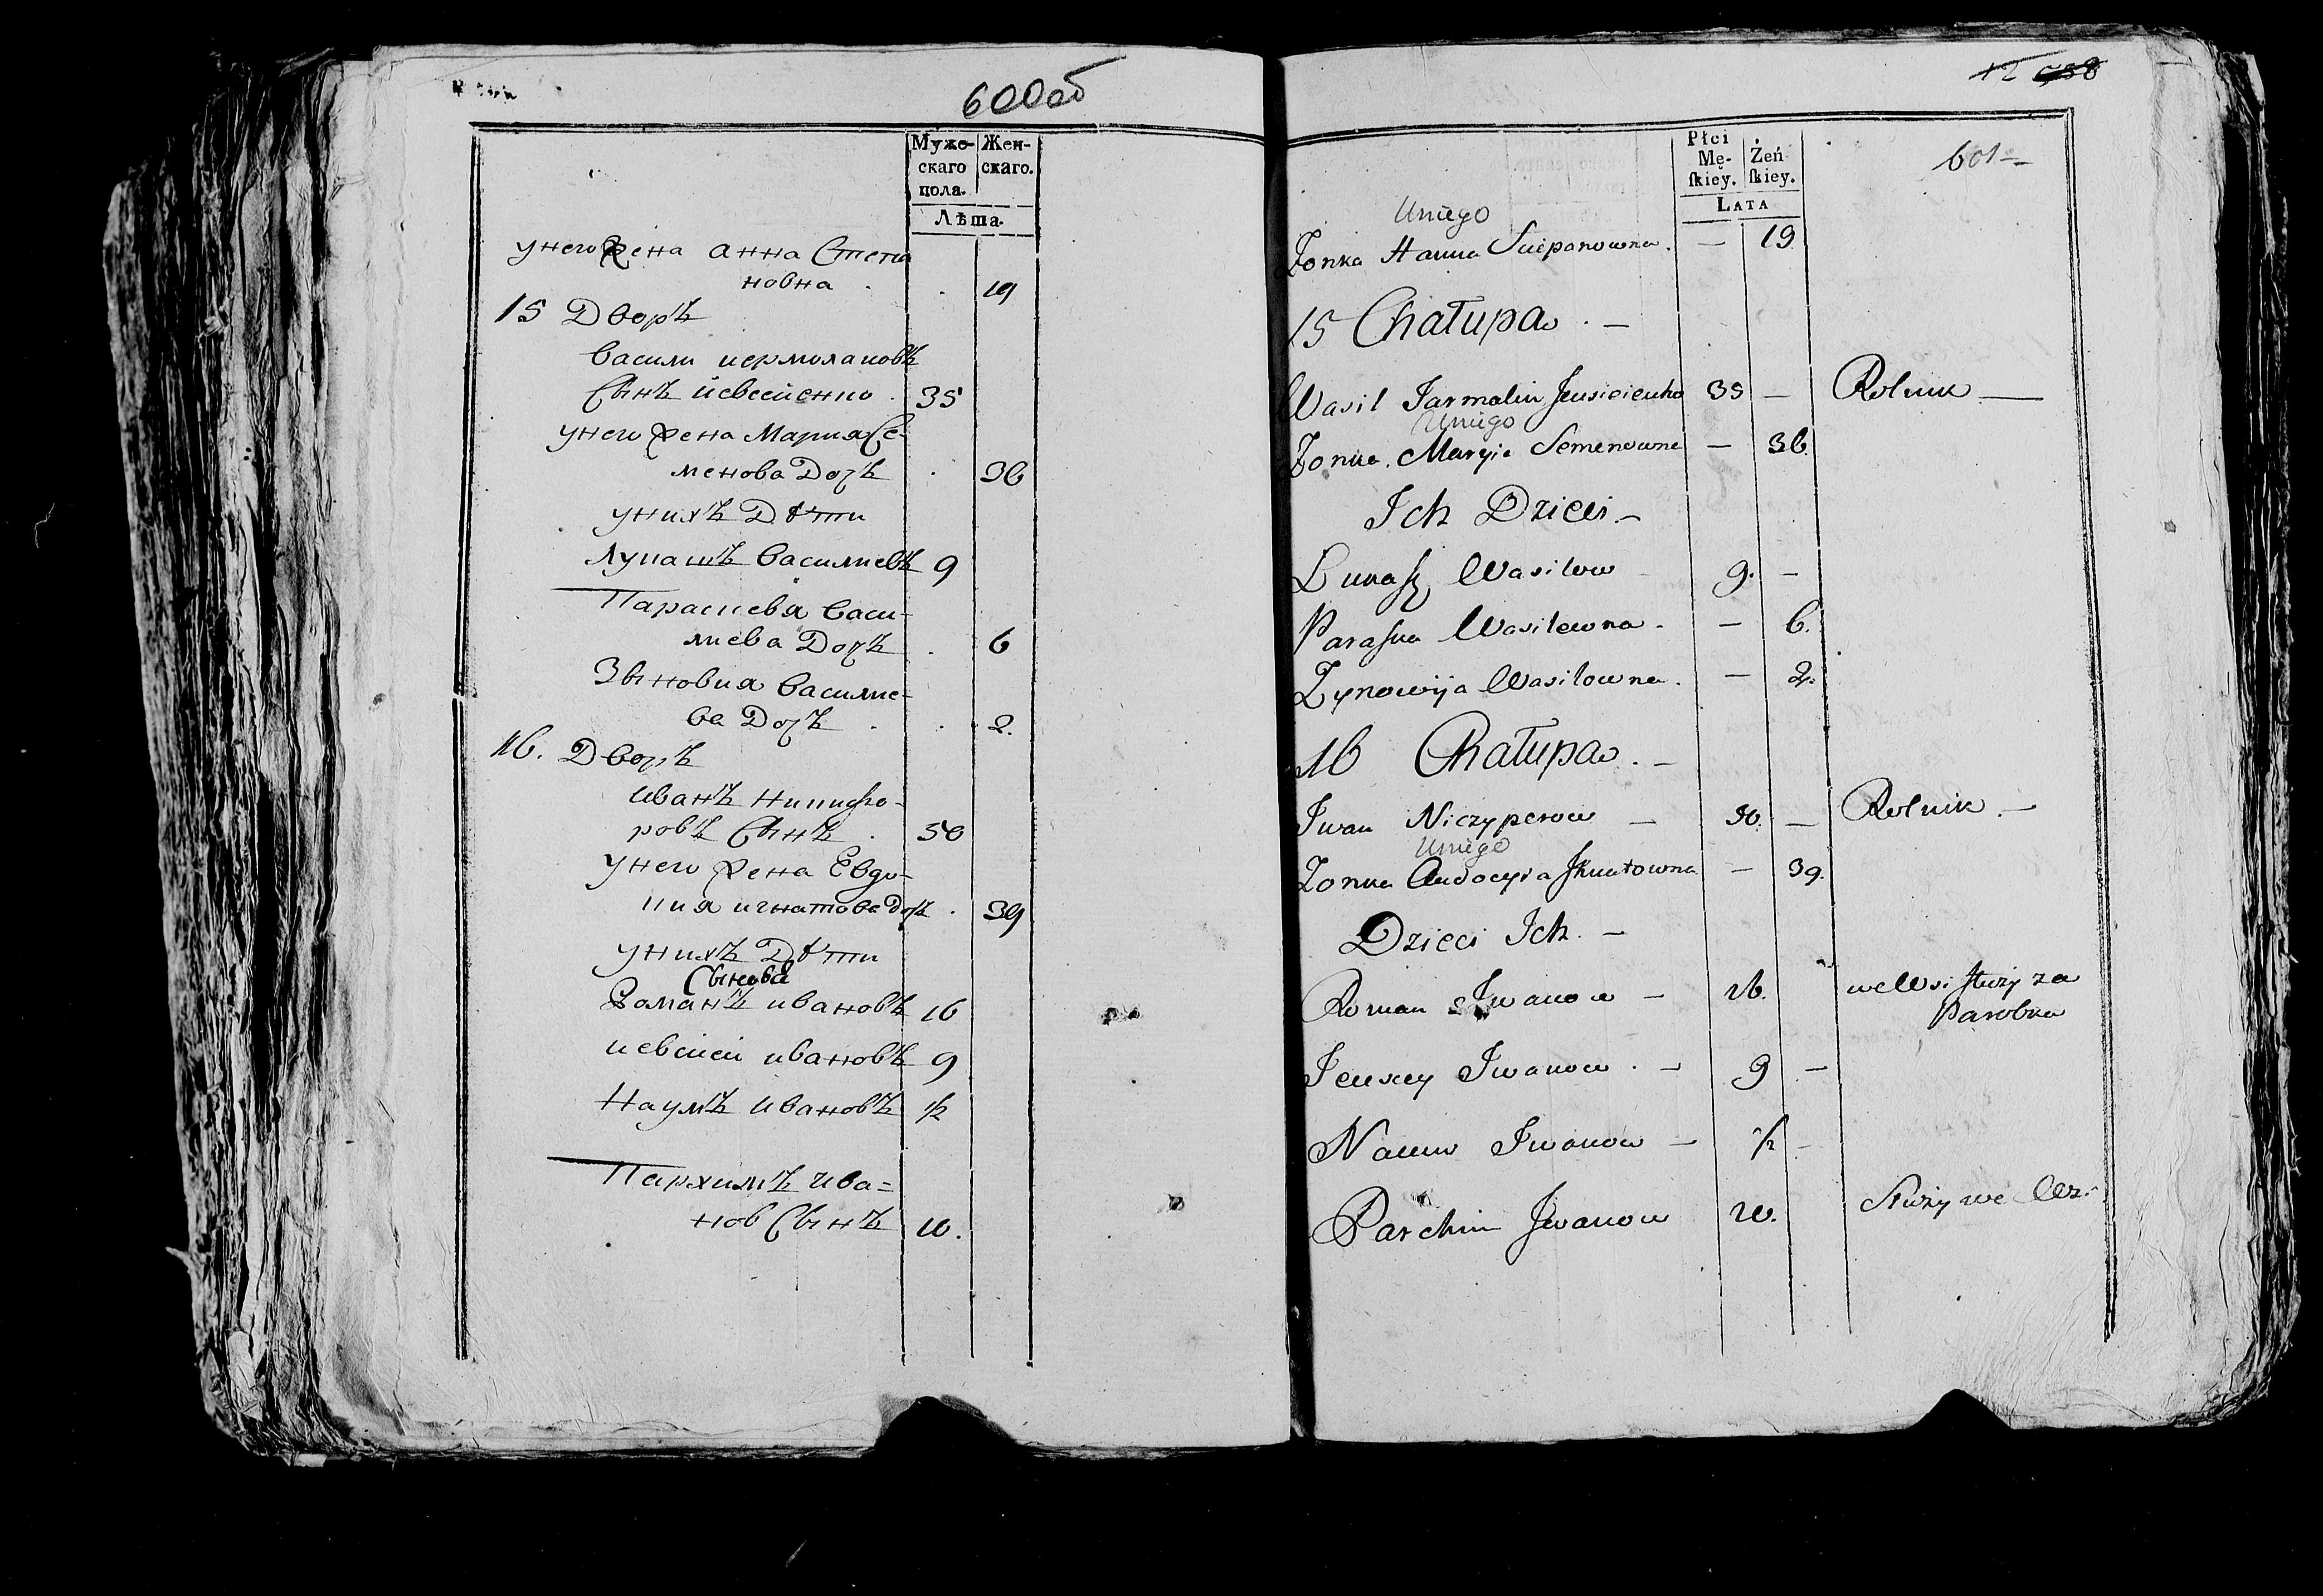 600об
Мужескаго пола. Женскаго.
Лѣта.
унего жена анна Степа
новна . . 19
15 Дворъ
Васили иермолаиовъ
Сынъ иевсеиенко . 35
унего жена Мария Се-
менова Дочь . 36
унихъ Дѣти
Лукашъ Василиевъ 9
Параскевя Васи-
лиева Дочь . 6
Зыновия Василие-
ва Дочь . . 2.
16. Дворъ
иванъ никифо-
ровъ Сынъ . 50
унего жена Евдо-
кия игнатова Дочь . 39
унихъ Дѣти
Сыновя
Романъ ивановъ 16
иевсеи ивановъ 9
Наумъ ивановъ 1/2
Пархимъ ива=
нов Сынъ 10.
12 658
601
Płci Męſkiey. Żeńſkiey.
LATA
Uniego
Zonka Hanna Sciepanowna. — 19
15 Chałupa . —
Wasil Jarmolin Jeusieienko 35 — Rolnik —
Uniego
Zonka. Maryia Semenowna — 36.
Ich Dzieci. —
Lukaſz Wasilow 9. —
Paraſka Wasilewna. — 6.
Zynowija Wasilowna. — 2.
16 Chałupa . —
Iwan Niczyperow — 50. — Rolnik. —
Uniego
Zonka Audocyia Ihnatowna — 39.
Dzieci Ich. —
Roman Iwanow — 16. we Wsi służy za
Parobka
Ieusey Iwanow . — 9 —
Naum Iwanow — 1/2 —
Parchim Iwanow 10. Służy we Wsi